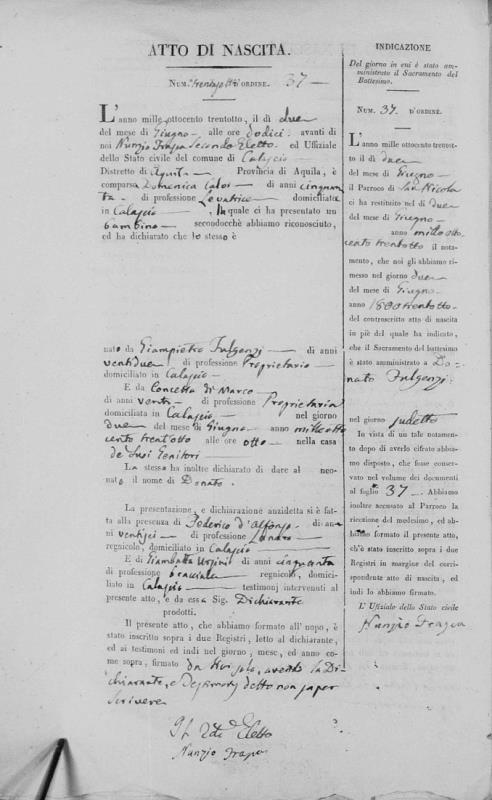 ATTO DI NASCITA.
NUM. trentasette D'ORDINE. 37
L'anno mille ottocento trentotto, il dì due
del mese di Giugno alle ore dodici avanti di
noi Nunzio Frapa Secondo Eletto ed Uffiziale
dello Stato civile del comune di Calascio
Distretto di Aquila Provincia di Aquila, è
comparsa Domenica di anni cinquan
ta di professione Levatrice domiciliata
in Calascio, quale ci ha presentato un
bambino secondocchè abbiamo riconosciuto,
ed ha dichiarato che lo stesso è
nato da Giampietro Fulgenzj di anni
ventidue di professione Proprietario
domiciliato in Calascio
E da Concetta di Marco
di anni venti di professione Proprietaria
domiciliata in Calascio nel giorno
due del mese di Giugno anno milleotto
cento trentotto alle ore otto nella casa
de Suoi Genitori
La stessa ha inoltre dichiarato di dare al neo-
nato il nome di Donato.
La presentazione, e dichiarazione anzidetta si è fat-
ta alla presenza di Federico d'Alfonso di an-
ni ventisei di professione
regnicolo, domiciliato in Calascio
E di Giambatta Ursini di anni cinquanta
di professione bracciale regnicolo, domici-
liato in Calascio testimonj intervenuti al
presente atto, e da essa Sig. Dichiarante
prodotti.
Il presente atto, che abbiamo formato all'uopo, è
stato inscritto sopra i due Registri, letto al dichiarante,
ed ai testimoni ed indi nel giorno, mese, ed anno co-
me sopra, firmato da Noi avendo la Di-
chiarante, e Testimonj detto non saper
scrivere
Il 2do Eletto
Nunzio Frapa
INDICAZIONE
Del giorno in cui è stato am-
ministrato il Sacramento del
Battesimo.
NUM. 37. D'ORDINE.
L'anno mille ottocento trentot-
to il dì due
del mese di Giugno
il Parroco di San Nicola
ci ha restituito nel dì due
del mese di Giugno
anno mille otto
cento trentotto il nota-
mento, che noi gli abbiamo ri-
messo nel giorno due
del mese di Giugno
anno 1800trentotto
del controscritto atto di nascita
in piè del quale ha indicato,
che il Sacramento del battesimo
è stato amministrato a Do-
nato Fulgenzj
nel giorno sudetto
In vista di un tale notamento
dopo di averlo cifrato abbia-
mo disposto, che fosse conser-
vato nel volume dei documenti
al foglio 37. Abbiamo
inoltre accusato al Parroco la
ricezione del medesimo, ed ab-
biamo formato il presente atto,
ch'è stato inscritto sopra i due
Registri in margine del corri-
spondente atto di nascita, ed
indi lo abbiamo firmato.
L'Uffiziale dello Stato civile
Nunzio Frapa